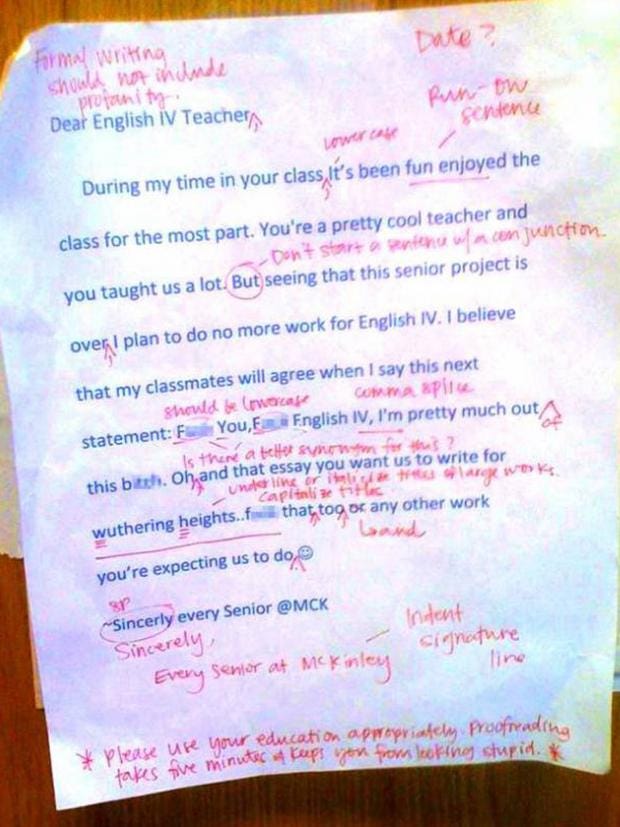 Formal writing
should not include
profanity.
Date?
Run-on
sentence
Dear English IV Teacher
lowercase
During my time in your class It's been fun enjoyed the
class for the most part. You're a pretty cool teacher and
Don't start a sentence w/ a conjunction.
you taught us a lot. But seeing that this senior project is
over I plan to do no more work for English IV. I believe
that my classmates will agree when I say this next
should be lowercase
comma splice
statement: F You,F English IV, I'm pretty much out
of
Is there a better synonym for this?
this b. Oh and that essay you want us to write for
underline or italicize titles of large works.
capitalize titles
wuthering heights..f that too or any other work
and
you're expecting us to do☺
sp
~Sincerly every Senior @MCK
Sincerely,
Every senior at McKinley
Indent
signature
line
* Please use your education appropriately. Proofreading
takes five minutes & keeps you from looking stupid. *